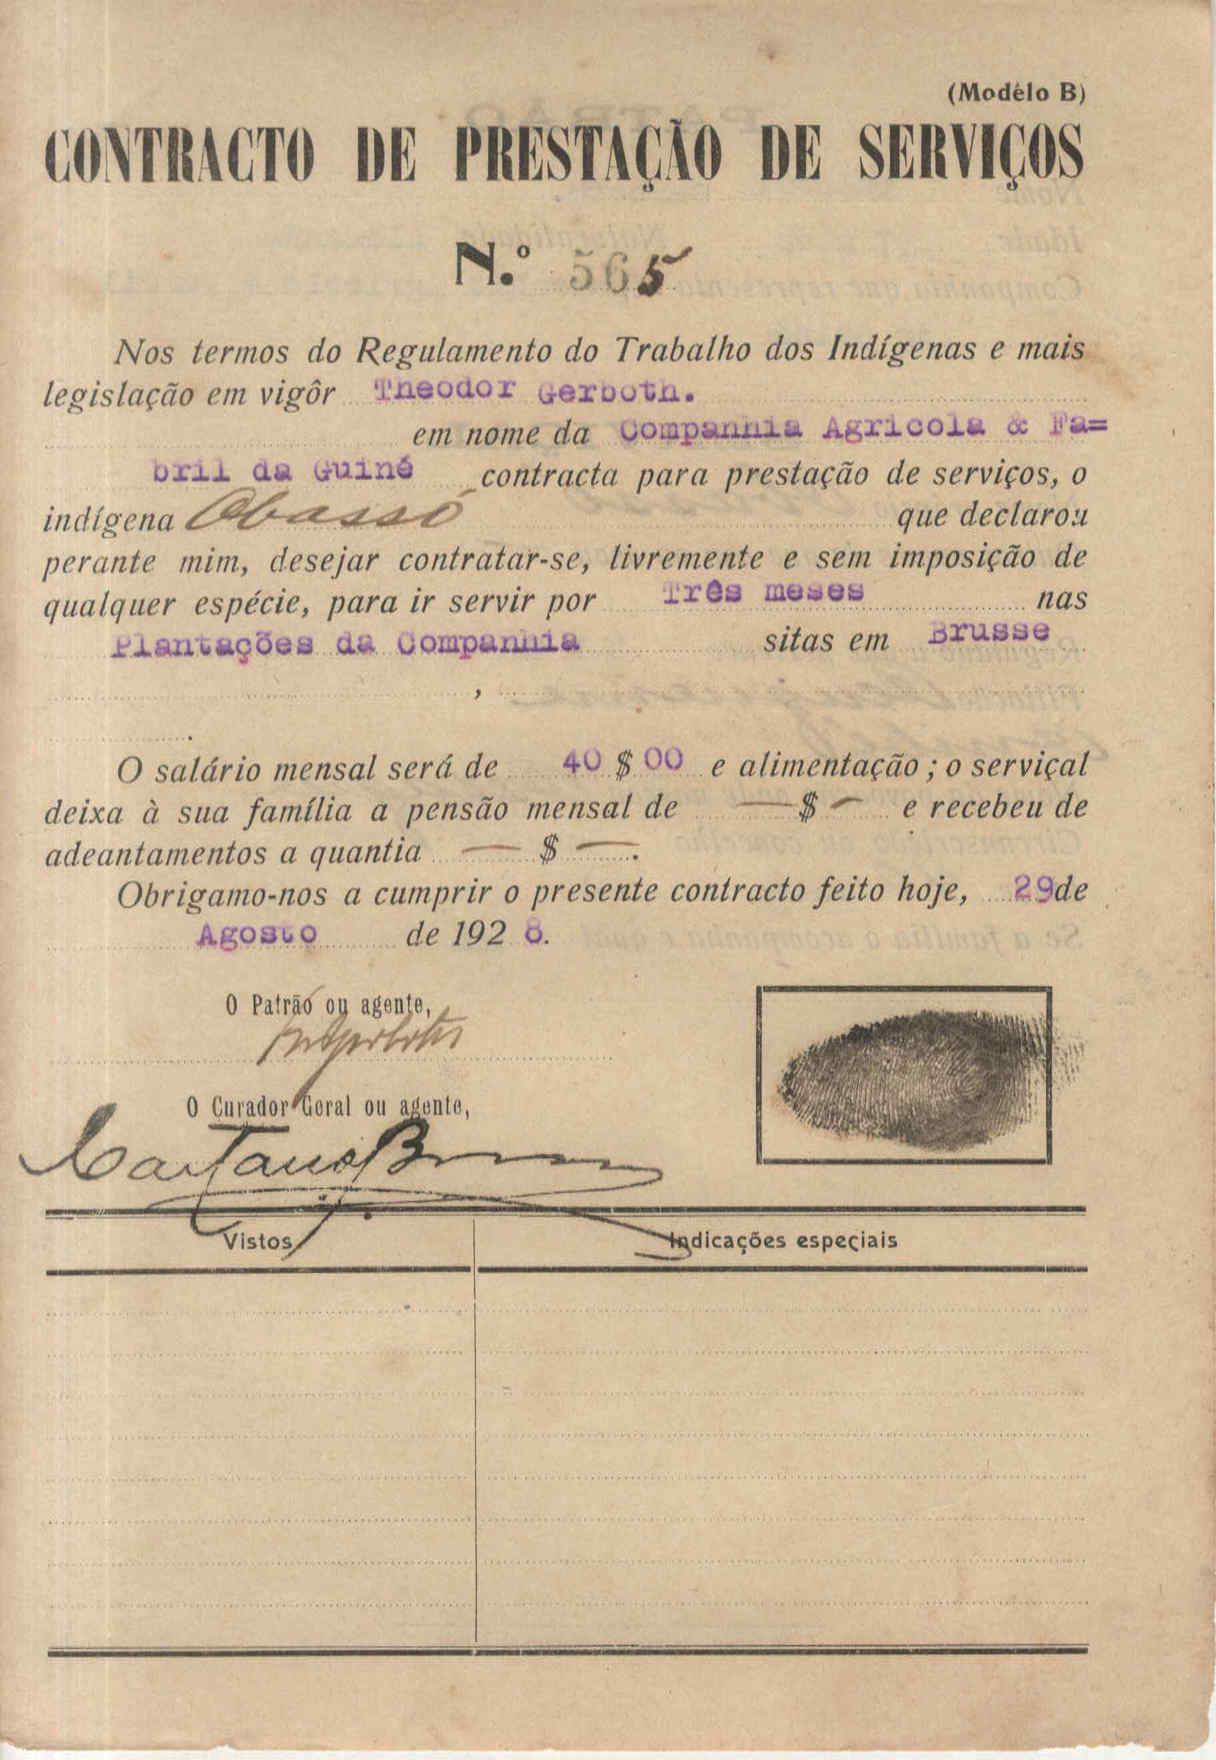 (Modêlo B)
CONTRACTO DE PRESTAÇÃO DE SERVIÇOS
N.º 565
Nos termos do Regulamento do Trabalho dos Indígenas e mais
legislação em vigôr Theodor Gerboth.
em nome da Companhia Agricola & Fa=
bril da Guiné contracta para prestação de serviços, o
indígena Obassó que declarou
perante mim, desejar contratar-se, livremente e sem imposição de
qualquer espécie, para ir servir por Três meses nas
Plantações da Companhia sitas em Brusse
,
.
O salário mensal será de 40 $ 00 e alimentação; o serviçal
deixa à sua família a pensão mensal de — $ — e recebeu de
adeantamentos a quantia — $ —.
Obrigamo-nos a cumprir o presente contracto feito hoje, 29 de
Agosto de 1928.
O Patrão ou agente,
O Curador Geral ou agente,
Caetano
Vistos Indicações especiais